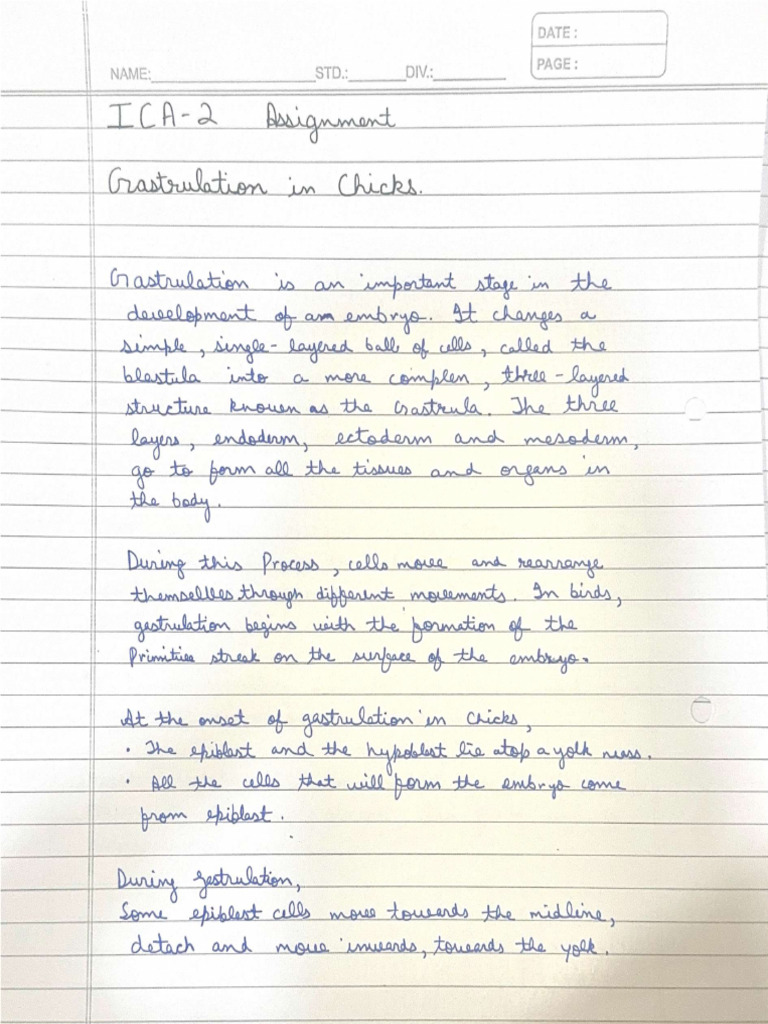 DATE :
PAGE :
NAME: STD.: DIV.:
ICA-2 Assignment
Gastrulation in Chicks.
Gastrulation is an important stage in the
development of am embryo. It changes a
simple, single-layered ball of cells, called the
blastula into a more complen, three-layered
structure known as the Gastrula. The three
layers, endoderm, ectoderm and mesoderm,
go to form all the tissues and organs in
the body.
During this Process, cells move and rearrange
themsellves through different movements. In birds,
gastrulation begins with the formation of the
Primitive streak on the surface of the embryo.
At the onset of gastrulation in Chicks,
• The epiblast and the hypoblast lie atop a yolk mass.
• All the cells that will form the embryo come
from epiblast.
During gastrulation,
Some epiblast cells move towards the midline,
detach and move inwards, towards the yolk.